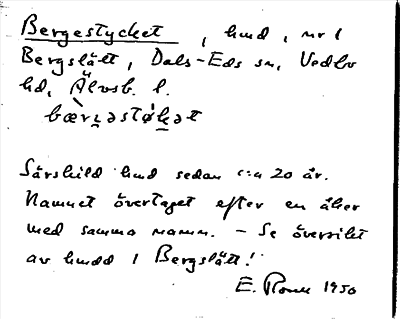 Bergestycket, hmd, nr 1
Bergslätt, Dals-Eds sn, Vedbo
hd, Älvsb. l.
bæ̀rɩ̣əstø̣ḳət
Särskild hmd sedan c:a 20 år.
Namnet övertaget efter en åker
med samma namn. - Se översikt
av hmdd 1 Bergslätt!
E. 1950